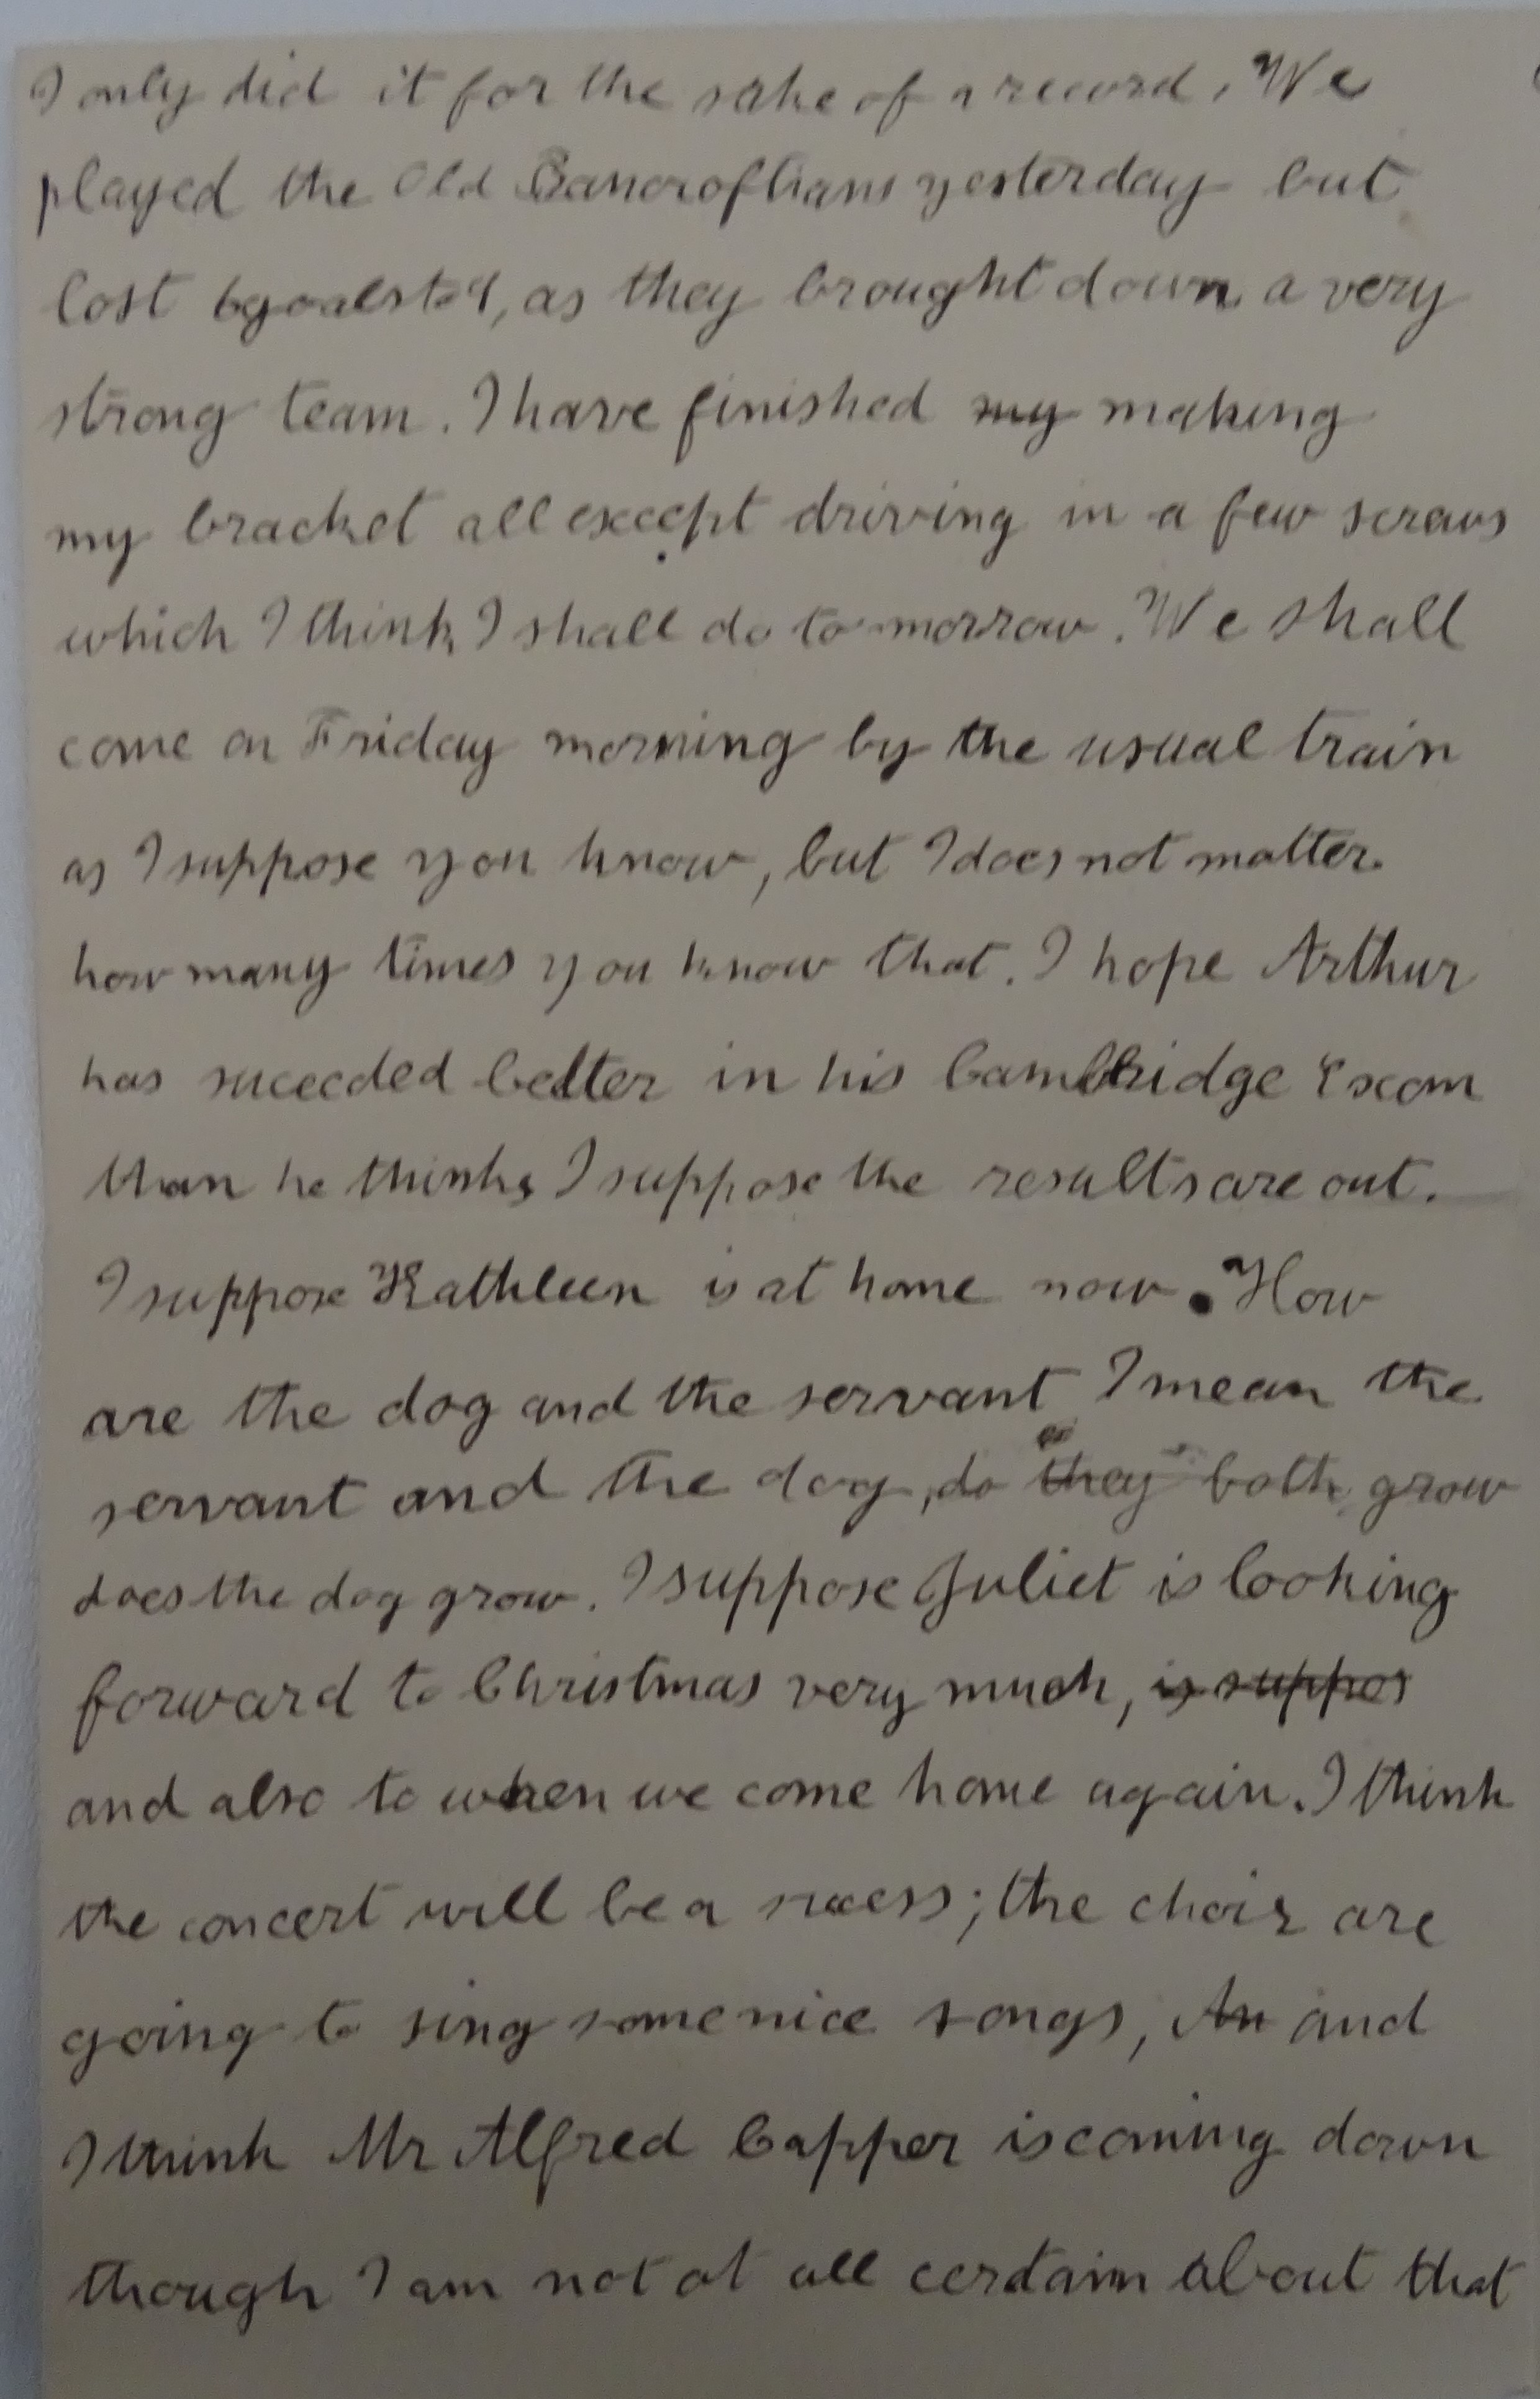 I only did it for the sake of a record. We
played the Old Bancroftians yesterday but
lost 6 goals to 4, as they brought down a very
strong team. I have finished my making
my bracket all except driving in a few screws
which I think I shall do to morrow. We shall
come on Friday morning by the usual train
as I suppose you know, but I does not matter
how many times you know that. I hope Arthur
has suceeded better in his Cambridge Exam
than he thinks I suppose the results are out.
I suppose Kathleen is at home now. How
are the dog and the servant I mean the
servant and the dog, do they both grow
does the dog grow. I suppose Juliet is looking
forward to Christmas very much, is suppos
and also to when we come home again. I think
the concert will be a success; the choir are
going to sing some nice songs, An and
I think Mr Alfred Capper is coming down
though I am not at all certain about that